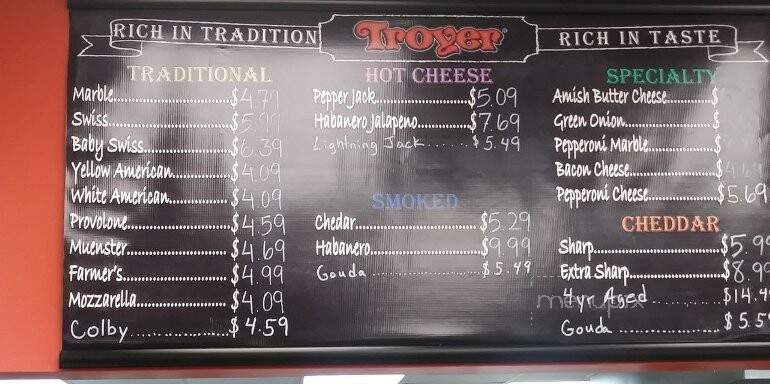 RICH IN TRADITION
Troyer
RICH IN TASTE
TRADITIONAL
Marble $4.79
Swiss $5.99
Baby Swiss $6.39
Yellow American $4.09
White American $4.09
Provolone $4.59
Muenster $4.69
Farmer's $4.99
Mozzarella $4.09
Colby $4.59
HOT CHEESE
Pepper Jack $5.09
Habanero Jalapeno $7.69
Lightning Jack $5.49
SMOKED
Chedar $5.29
Habanero $9.99
Gouda $5.49
SPECIALTY
Amish Butter Cheese $
Green Onion $
Pepperoni Marble $
Bacon Cheese $4.69
Pepperoni Cheese $5.69
CHEDDAR
Sharp $5.99
Extra Sharp $8.99
4 yr Aged $14.4
Gouda $5.5
menupix